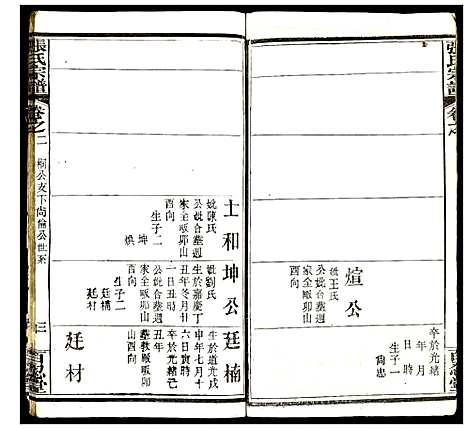 張氏宗譜
卷之
煊公
妣王氏
公妣合墓迴
家全畈卯山
酉向
卒於光緒
年月
日時
生子一
尙忠
張氏宗譜
卷之二
桐公支下尚倫公世系
三
百忍堂
士和
妣陳氏
公妣合墓迴
家全畈卯山
酉向
生子二
坤
煥
坤公
妣劉氏
生於嘉慶丁
丑年冬月廿
一日丑時
公妣合墓迴
家全畈卯山
酉向
生子二
廷楠
廷材
廷楠
生於道光戊
申年七月十
六日寅時
卒於光緒己
丑年
墓敦厰畈卯
山酉向
廷材